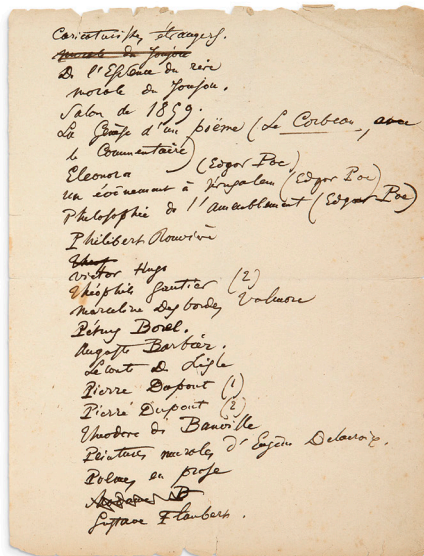 Caricaturistes étrangers.
morale du Joujou
De l'Essence du rire
morale du Joujou.
Salon de 1859.
La Genèse d'un poëme (Le Corbeau, avec
le Commentaire)
Eleonora (Edgar Poe)
un évènement à Jérusalem (Edgar Poe)
Philosophie de l'ameublement (Edgar Poe)
Philibert Rouvière
Victor Hugo
Théophile Gautier (2)
marceline Desbordes Valmore
Pétrus Borel.
Auguste Barbier.
Leconte de Lisle
Pierre Dupont (1)
Pierre Dupont (2)
Théodore de Banville
Peintures murales d'Eugène Delacroix.
Poëmes en prose
Gustave Flaubert.